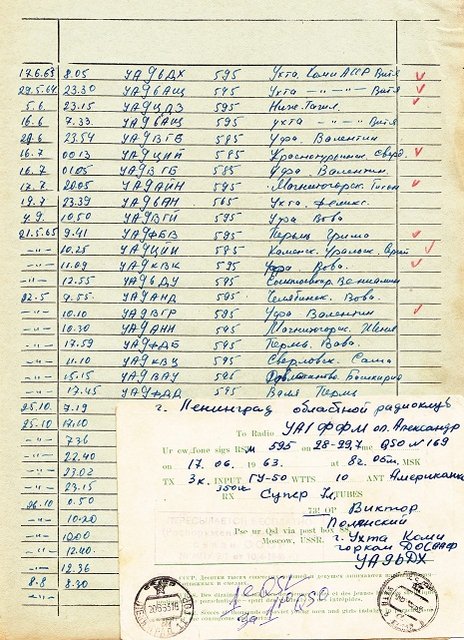 17.6.63 8.05 УА9ЬДХ 595 Ухта. Коми АССР Витя
29.5.64 23.30 УА9ЬАЩ 595 Ухта -"- -"- Витя
5.6 23.15 УА9ЦДЗ 595 Ниж. Тагил.
16.6 7.33 УА9ЬАЩ 595 Ухта -"- -"- Витя
23.54 УА9ВГБ 585 Уфа. Валентин
16.7 00.13 УА9ЦИЙ 585 Краснотурьинск Сверд.
16.7 01.05 УА9ВГБ 585 Уфа. Валентин.
17.7 УА9АИН 595 Магнитогорск.
19.7 23.39 УА9ЬАН 565 Ухта. Феликс.
4.9. 10.50 УА9ВГИ 595 Уфа Вова.
21.5.65 9.41 УА9ФБВ 595 Пермь
-"- 10.25 УА9ЦИИ 585 Каменск. Уральск.
-"- 11.09 УА9КВК 595 Уфа Вова.
-"- 12.55 УА9ЬДУ 595
22.5 9.55 УА9АНД 595 Челябинск. Вова.
-"- 10.10 УА9ВГР 595 Уфа Валентин
-"- 10.30 УА9АНН 595 Магнитогорск. Женя
-"- 17.59 УА9ФДБ 595 Пермь. Вова.
-"- 11.10 УА9КВЦ 595 Свердловск. Саша
-"- 15.15 УА9ВАУ Башкирия
-"- 17.45 УА9ФДД 595 Валя Пермь
25.10 7.19
25.10 17.10
-"- 7.36
-"- 22.40
-"- 23.02
-"- 23.15
26.10 0.50
-"- 10.20
-"- 12.00
-"- 12.40
-"- 12.36
8.8 8.30
г. Ленинград областной радиоклуб
To Radio УА1ФФМ оп. Александр
Ur cw.fone sigs RSM 595 on 28-29,7 mc QSO №169
on 17.06. 1963. at 8ч. 05м. MSK
TX 3к. INPUT ГУ-50 WTTS 10 ANT Американка
RX Супер
73! OP Виктор
Полянский
Pse ur Qsl via post box 88
Moscow, USSR.
г. Ухта Коми
горком ДОСААФ
УА9ЬДХ
1 QSL
за 1 QSO